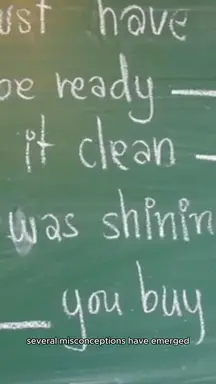 ust have
be ready —
it clean —
was shinin
__ you buy
several misconceptions have emerged